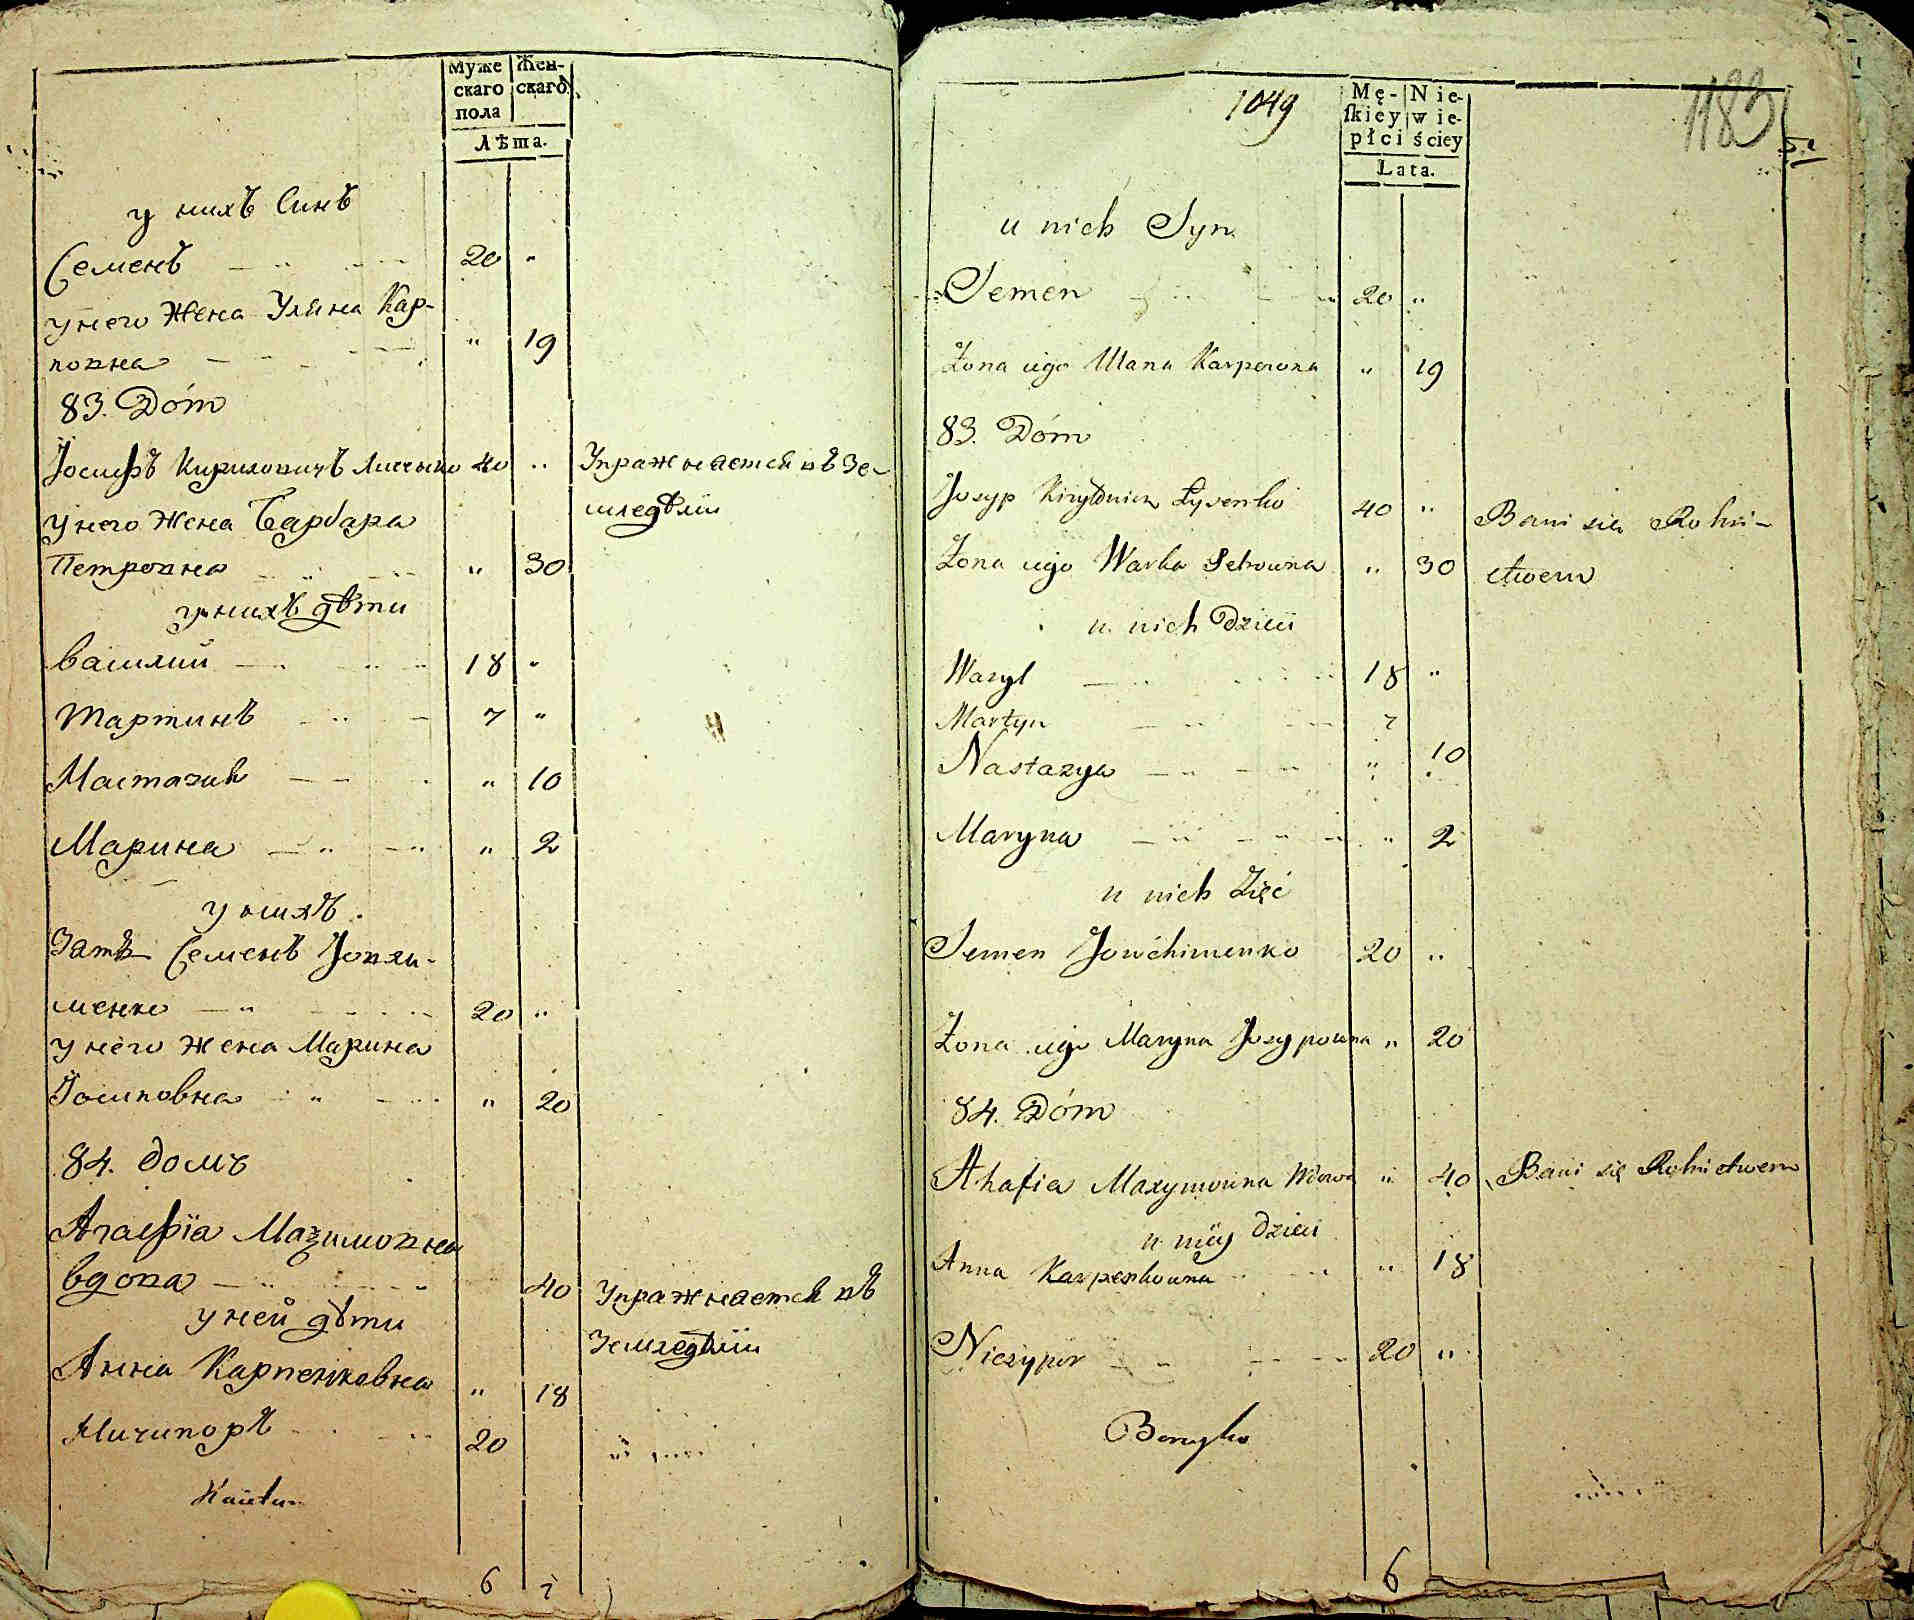 Муже
скаго
пола
Жен-
скаго
Лѣта.
у нихъ Синъ
Семенъ 20 "
у него Жена Уляна Кар-
повна " 19
83. Dóm
Іосифъ Кириловичъ Лисенко 40 " Упражняется въ Зе-
у него Жена Варвара мледѣліи
Петровна " 30
у нихъ дѣти
Василий 18 "
Мартинъ 7 "
Настазия " 10
Марина " 2
у нихъ
Зять Семенъ Іовхи-
менко 20 "
у него Жена Марина
Іосиповна " 20
84. домъ
Агафїа Маѯимовна
вдова 40 Упражняется въ
у ней дѣти Земледѣліи
Анна Карпенковна " 18
Ничипоръ 20
6 7
1049
1183
Mę-
ſkiey
płci
Nie-
wie-
ściey
Lata.
u nich Syn
Semen 20 "
Żona iego Ulana Karpowna " 19
83. Dóm
Josyp Kiryłowicz Łysenko 40 " Bawi się Rolni-
Żona iego Warka Petrowna " 30 ctwem
u nich Dzieci
Wasyl 18 "
Martyn 7
Nastazya " 10
Maryna " 2
u nich Zięć
Semen Jowchimenko 20 "
Żona iego Maryna Josypowna " 20
84. Dóm
Ahafia Maxymowna Wdowa " 40 Bawi się Rolnictwem
u niey Dzieci
Anna Karpenkowna " 18
Niczypor 20 "
6